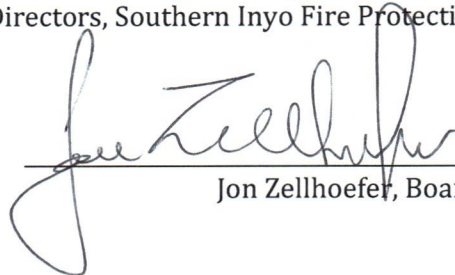 Directors, Southern Inyo Fire Protecti
Jon Zellhoefer
Jon Zellhoefer, Boar